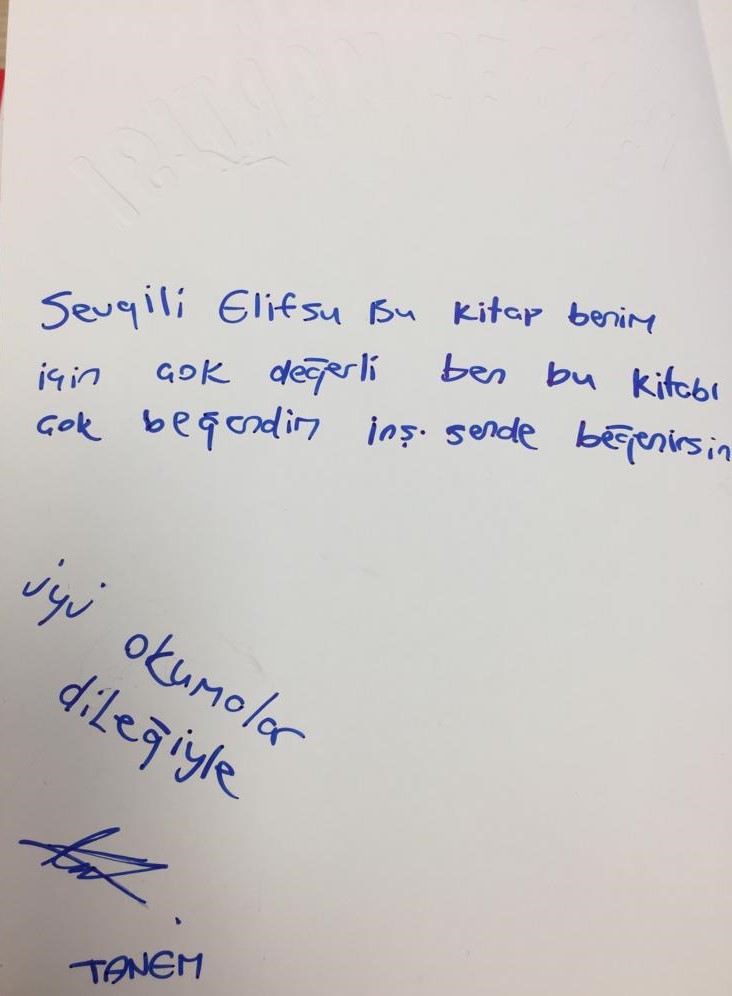 Sevgili Elifsu Bu kitap benim
için çok değerli ben bu kitabı
çok beğendim inş. sende beğenirsin
iyi okumalar
dileğiyle
TANEM